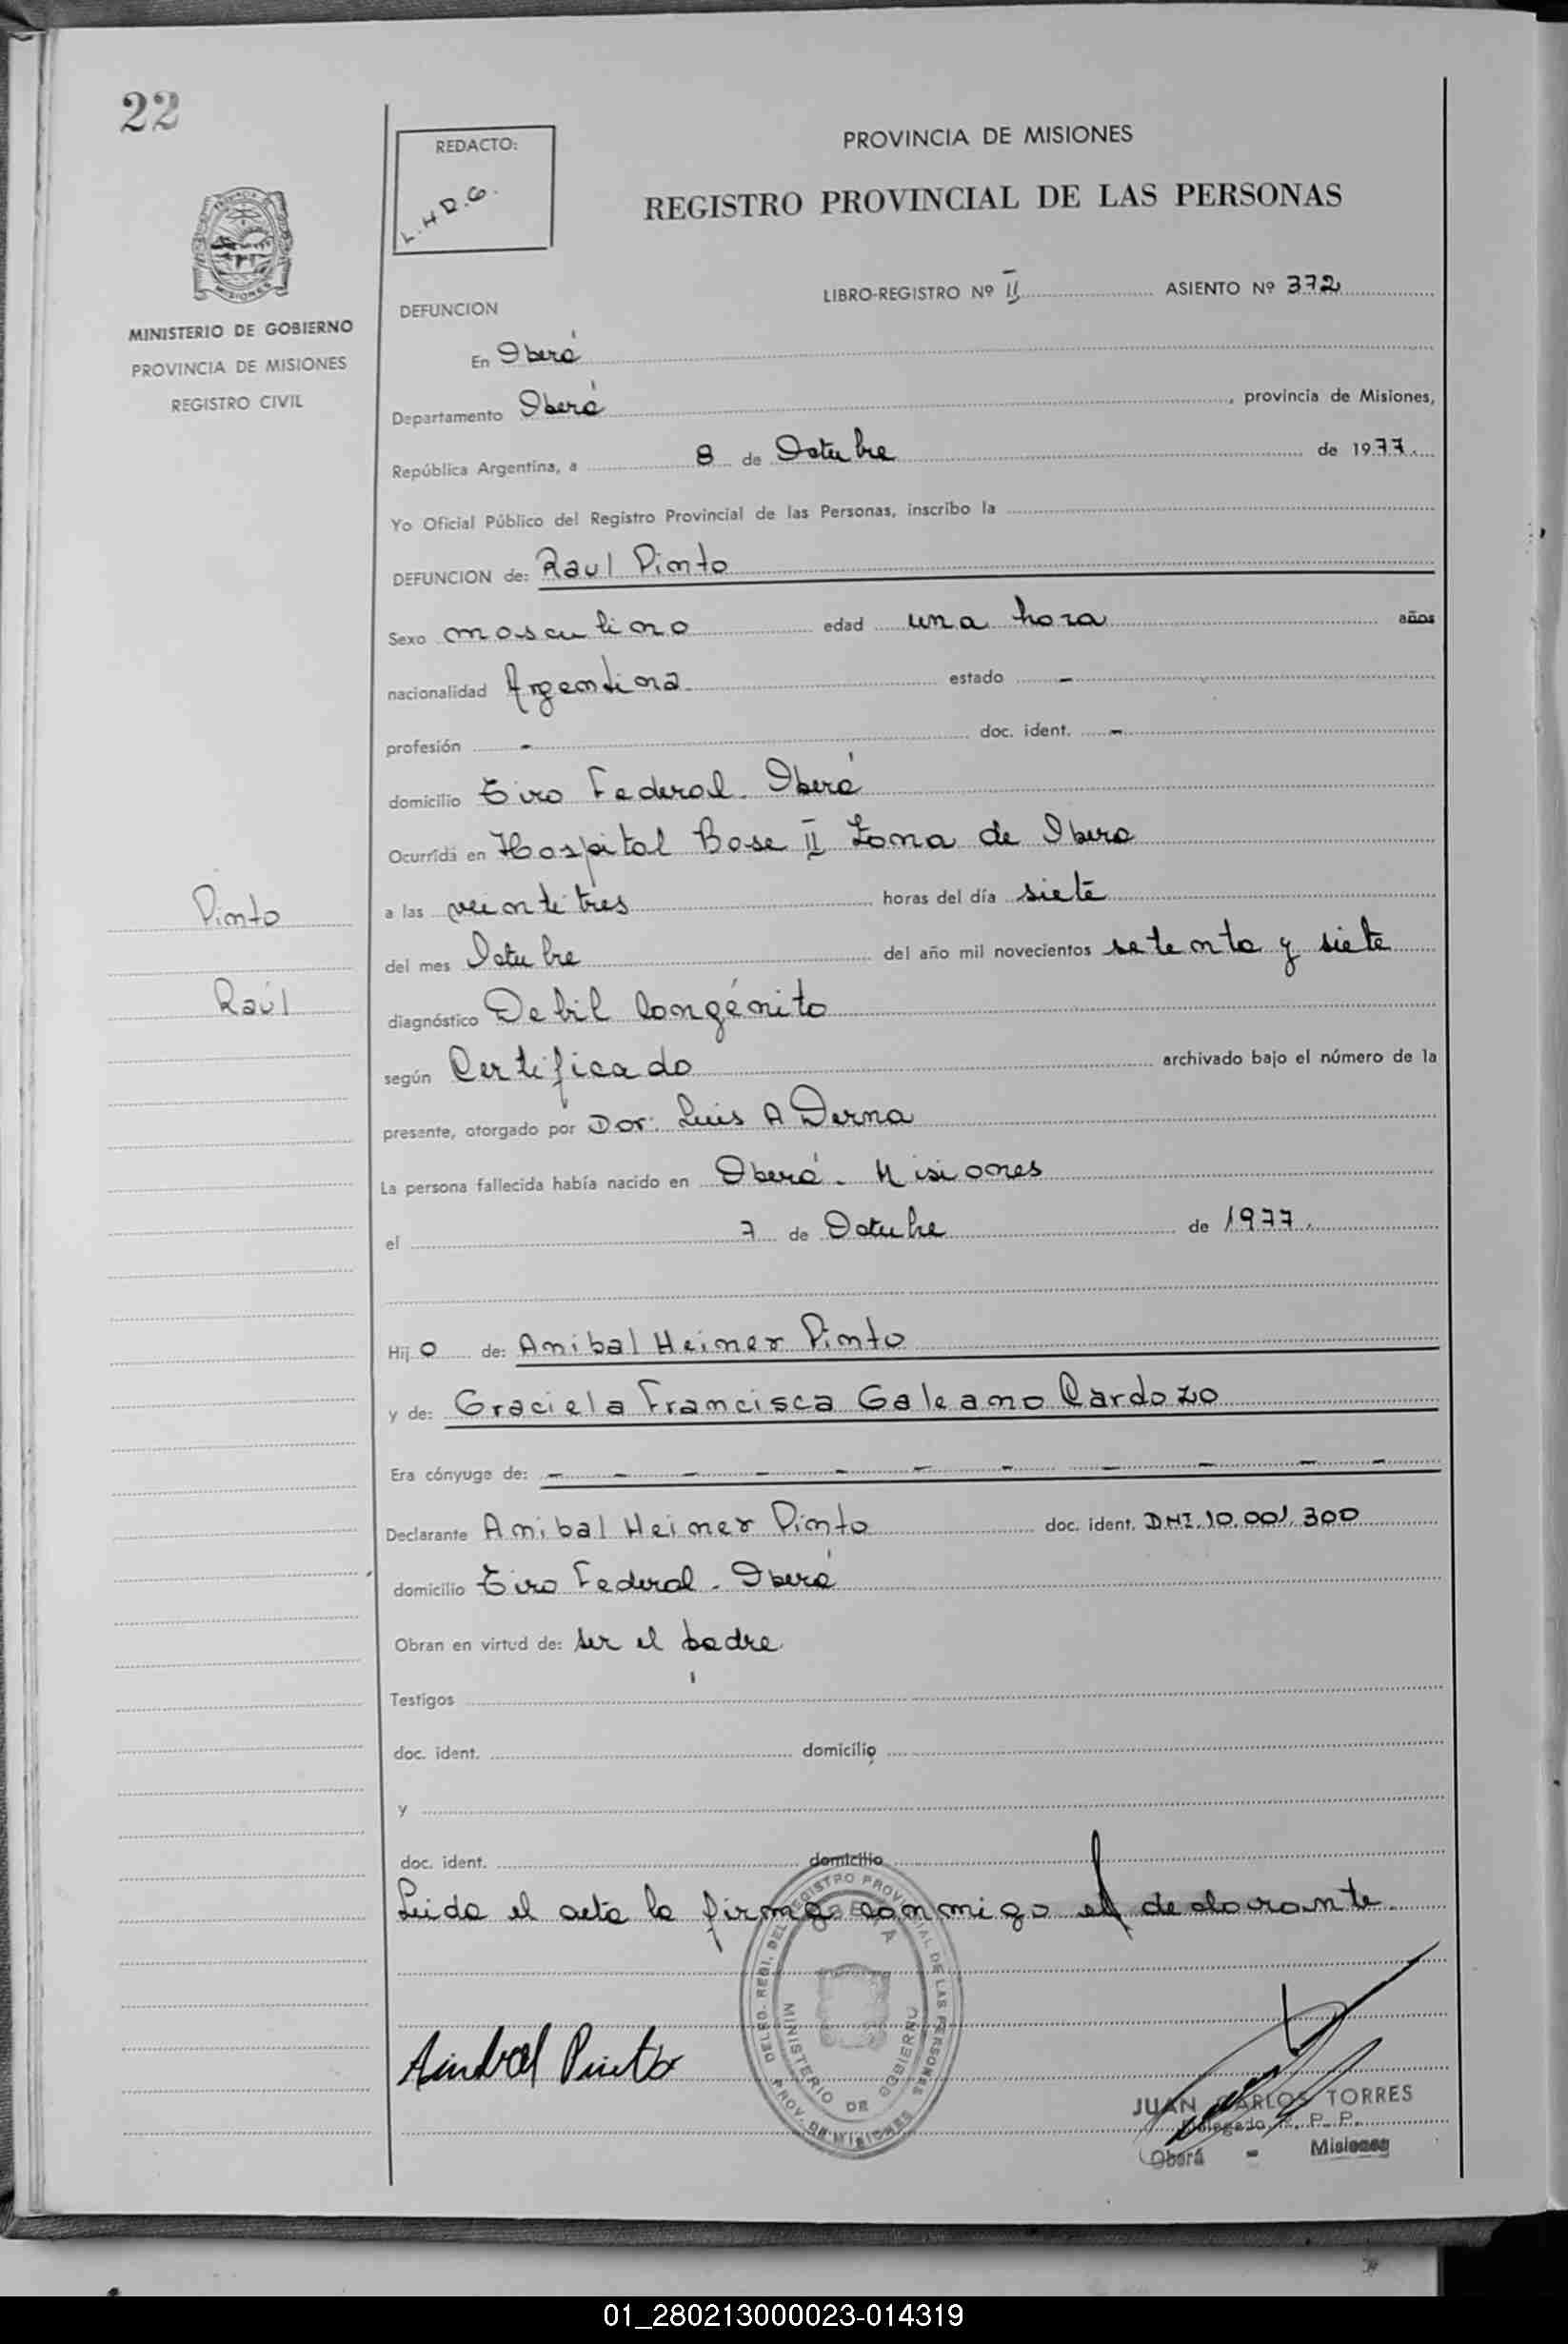 22
REDACTO:
L.H.D.G.
PROVINCIA DE MISIONES
REGISTRO PROVINCIAL DE LAS PERSONAS
MISIONES
MINISTERIO DE GOBIERNO
PROVINCIA DE MISIONES
REGISTRO CIVIL
LIBRO-REGISTRO Nº II ASIENTO Nº 372
DEFUNCION
En Oberá
Departamento Oberá, provincia de Misiones,
República Argentina, a 8 de Octubre de 1977.
Yo Oficial Público del Registro Provincial de las Personas, inscribo la
DEFUNCION de: Raul Pinto
Sexo masculino edad una hora años
nacionalidad Argentina estado -
profesión - doc. ident. -
domicilio Tiro Federal - Oberá
Ocurrida en Hospital Base II Zona de Obera
Pinto
a las veintitres horas del día siete
del mes Octubre del año mil novecientos setenta y siete
Raúl
diagnóstico Debil Congénito
según Certificado archivado bajo el número de la
presente, otorgado por Dor: Luis A Derna
La persona fallecida había nacido en Oberá - Misiones
el 7 de Octubre de 1977.
Hijo de: Anibal Heiner Pinto
y de: Graciela Francisca Galeano Cardozo
Era cónyuge de: - - - - - - - - - - -
Declarante Anibal Heiner Pinto doc. ident. DNI. 10.001.300
domicilio Tiro Federal - Oberá
Obran en virtud de: ser el padre
Testigos
doc. ident. domicilio
y
doc. ident. domicilio
Leida el acta la firma conmigo el declarante.
DELEG. REGI. DEL REGISTRO PROVINCIAL DE LAS PERSONAS
OBERA
MINISTERIO DE GOBIERNO
PROV. DE MISIONES
Pinto
JUAN CARLOS TORRES
Delegado R. P. P.
Oberá - Misiones
01_280213000023-014319